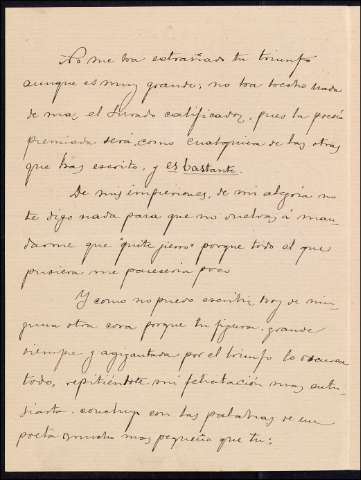 No me ha extrañado tu triunfo
aunque es muy grande; no ha hecho nada
de mas, el Jurado calificador, pues la poesía
premiada será, como cualquiera de las otras
que has escrito, y es bastante.
De mis impresiones, de mi alegría no
te digo nada para que no vuelvas á man-
darme que "quite jierro" porque todo el que
pusiera me parecería poco
Y como no puedo escribir hoy de nin-
guna otra cosa porque tu figura, grande
siempre y agigantada por el triunfo lo oscurece
todo, repitiéndote mi felicitación mas entu-
siasta, concluyo con las palabras de un
poeta mucho mas pequeño que tu: